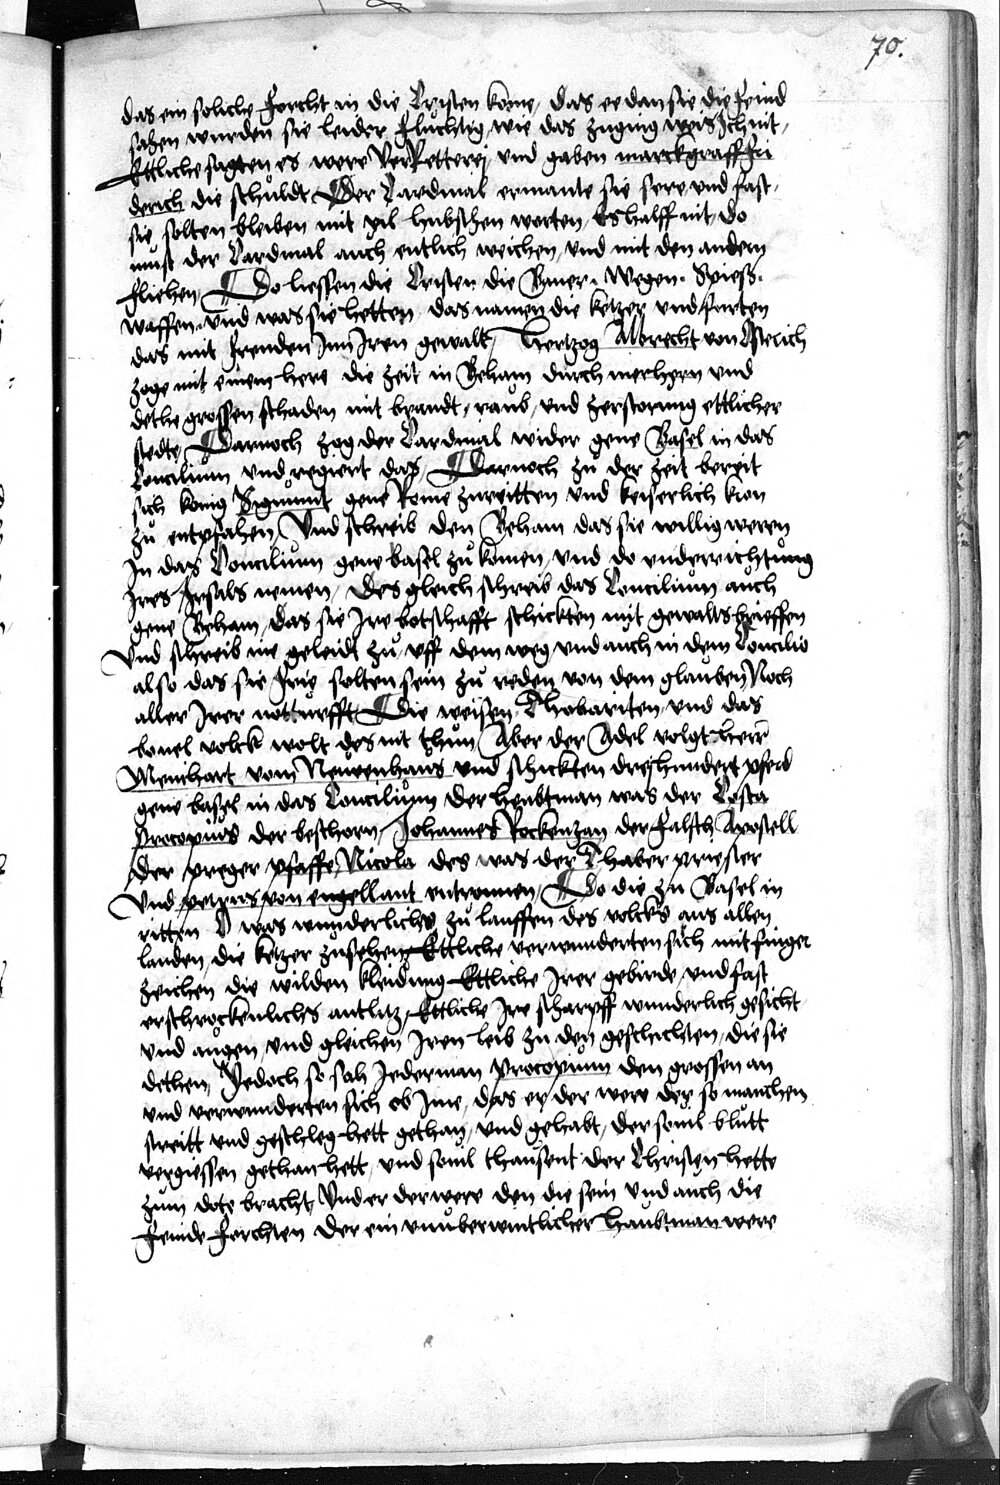 70.
das ein soliche forcht in die Cristen kome, das ee dan sie die feind
sahen wurden sie leider fluchtig, wie das zuging weis ich nit,
Ettliche sagten es were Verretterej, und gaben marckgraff fri
derich die schuldt Der Cardinal ermante sie sere und fast,
sie solten bleiben mit vil hubschen worten, Es halff nit, do
must der Cardinal auch entlich weichen, und mit den andern
fliehen, Do liessen die Cristen die Baner. Wegen. Spiess.
waffen. und was sie hetten, das namen die ketzer und furten
das mit freuden Inn Iren gewalt, Hertzog Albrecht von Osterich
zoge mit einem here die zeit in Beham durch merhern und
dethe grossen schaden mit brandt, raub, und zerstorung ettlicher
stedte, Darnoch zog der Cardinal wider gene Basel in das
Concilium und regiert das, Darnoch zu der zeit bereit
sich konig Sigmunt gene Rome zureitten und keiserlich kron
zu entpfahen, Und schreib den Beham das sie willig weren
In das Concilium gene basel zu komen, und do underrichtung
Ires Irsals nemen, Des gleich schreib das Concilium auch
gene Beham, das sie Ire botschafft schickten mit gewalts brieffen
Und schreib ine geleidt zu, uff dem weg und auch in dem Concilio
also das sie frie solten sein zu reden von dem glauben, Noch
aller Irer notturfft Die weisen Thabariten und das
bouel volck wolt des nit thun, Aber der Adel volgt herr
Meinhart vom Neuenhaus und schickten dreihundert pferd
gene basel in das Concilium der heubtman was der Costa
Procopius der beschorn, Johannes Rockenzan der falsch Apostell
der preger pfaffe, Nicola des was der Thaber priester
Und petrus von engellant entrunnen, Do die zu Basel in
ritten O was wunderlichs zu lauffen des volcks aus allen
landen, die ketzer zusehen, Ettliche verwunderten sich mit finger
zeichen die wilden kleidung Ettliche Irer geberde, und fast
erschrockenlichs antlitz, Ettliche Ire scharpff wunderlich gesicht
und augen, und gleichen Iren leib zu den geschichten, die sie
dethen, Jedoch so sah Jederman Procopium den grossen an
und verwunderten sich ob Ime, das er der were der so manchen
streitt und geschleg hett gethan, und gehabt, der souil blutt
vergiessen gethan hett, und souil thausent der Christen hette
zum dote bracht, Und er der were den die sein und auch die
feinde forchten der ein unuberwintlicher haubtman were